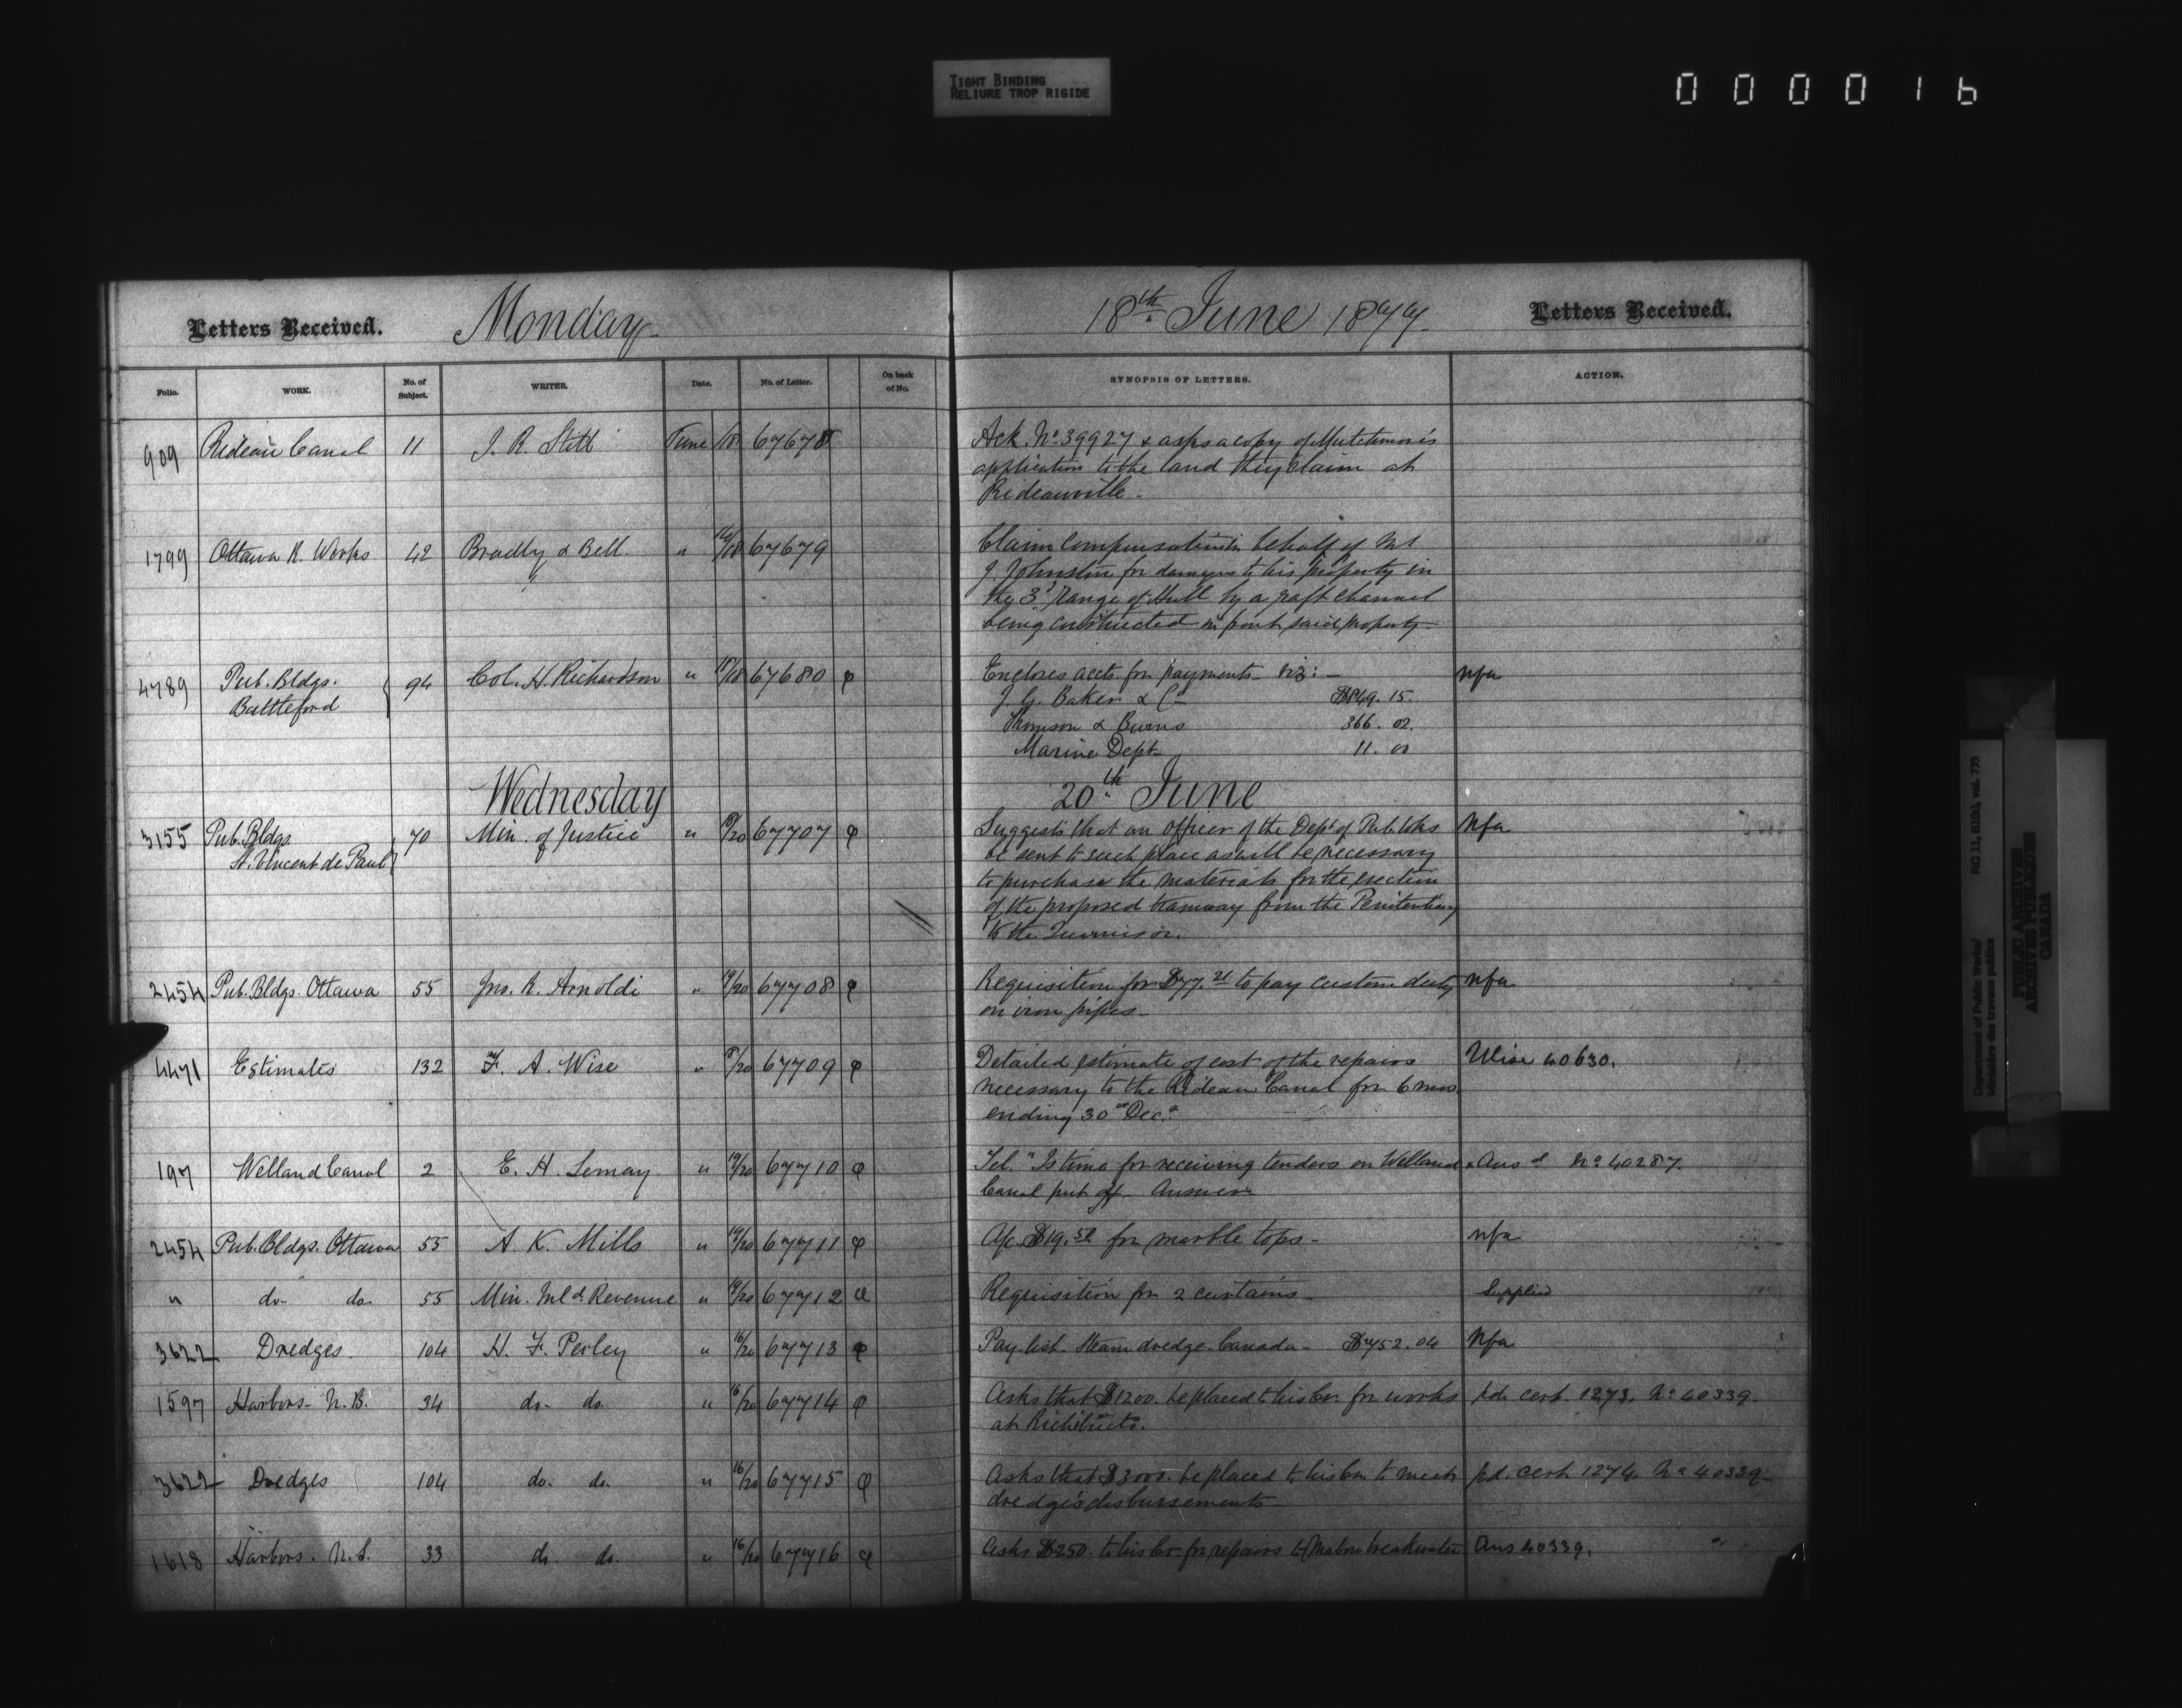 TIGHT BINDING
RELIURE TROP RIGIDE
000016
Letters Received. Monday 18th June 1877. Letters Received.
Folio. WORK. No. of Subject. WRITER. Date. No. of Letter. On back of No. SYNOPSIS OF LETTERS. ACTION.
909 Rideau Canal 11 J. R. Stitt June /18 67678 Ack. No 39927 & asks a copy of Mutchmor's
application to the land they claim at
Rideauville.
1799 Ottawa R. Works 42 Bradly & Bell " 16/18 67679 Claim compensation in behalf of Mr
J. Johnston for damages to his property in
the 3d range of Hull by a raft channel
being constructed in front said property.
4789 Pub. Bldgs. 94 Col. H. Richardson " 18/18 67680 Encloses accts. for payments viz: — nfa
Battleford J. G. Baker & Co $849.15.
Thomson & Burns 366.02.
Marine Dept 11.00
Wednesday 20th June
3155 Pub. Bldgs. 70 Min. of Justice " /20 67707 Suggests that an officer of the Dept of Pub. Wks Nfa
St. Vincent de Paul be sent to such place as will be necessary
to purchase the materials for the erection
of the proposed tramway from the Penitentiary
to the
2454 Pub. Bldgs. Ottawa 55 Jno. R. Arnoldi " 19/20 67708 Requisition for $77.21 to pay custom duty nfa
on iron pipes
4471 Estimates 132 F. A. Wise " 18/20 67709 Detailed estimate of cost of the repairs Wise 40630.
necessary to the Rideau Canal for 6 mos.
ending 30th Dec.
197 Welland Canal 2 E. H. Lemay " 19/20 67710 Tel. "Is time for receiving tenders on Welland Ansd No 40287.
Canal put off. Answer
2454 Pub. Bldgs. Ottawa 55 A. K. Mills " 19/20 67711 A/c $19.50 for marble tops nfa
" do- do 55 Min. Inld. Revenue " 19/20 67712 Requisition for 2 curtains Supplied
3622 Dredges 104 H. F. Perley " 16/20 67713 Pay list. Steam dredge Canada $752.04 Nfa
1597 Harbors N.B. 34 do- do " 16/20 67714 Asks that $1200. be placed to his Cr. for works pd. cert. 1273. No 40339.
at Richibucto.
3622 Dredges 104 do. do. " 16/20 67715 Asks that $3000. be placed to his Cr. to meet pd. cert. 1274. No 40339
dredge's disbursements
1618 Harbors. N.S. 33 do do. " 16/20 67716 Asks $250. to his Cr. for repairs to Mabou breakwater Ans 40339.
Department of Public Works/
Ministère des travaux publics
RG 11, B1(b), vol. 735
PUBLIC ARCHIVES
ARCHIVES PUBLIQUES
CANADA